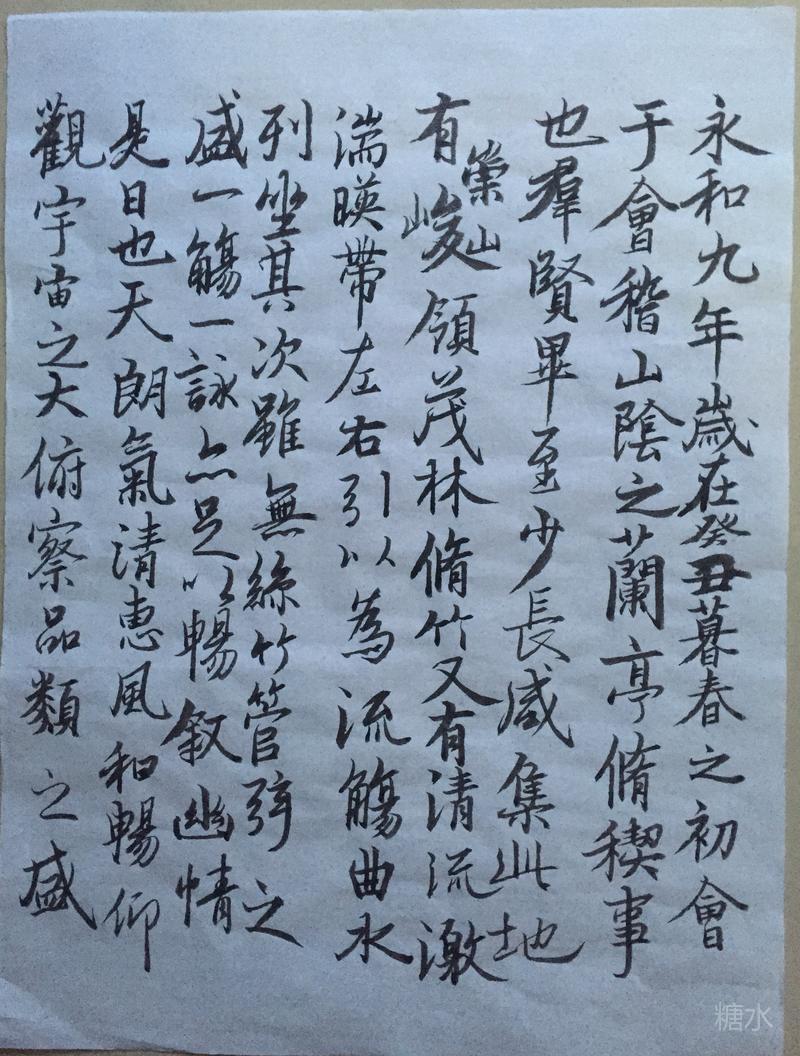 永和九年歲在癸丑暮春之初會
于會稽山陰之蘭亭脩稧事
也羣賢畢至少長咸集此地
有崇山峻領茂林脩竹又有清流激
湍暎帶左右引以為流觴曲水
列坐其次雖無絲竹管弦之
盛一觴一詠亦足以暢敘幽情
是日也天朗氣清惠風和暢仰
觀宇宙之大俯察品類之盛
糖水